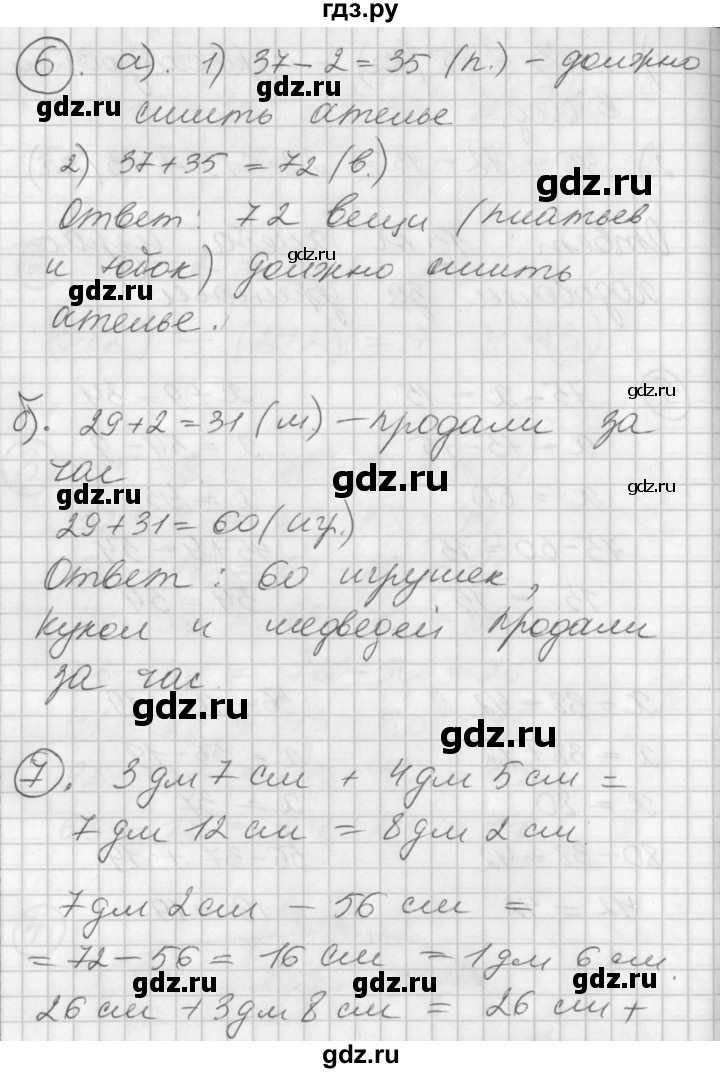 гдз.ру
6. а). 1) 37 - 2 = 35 (п.) - должно
gdz.ru gdz.ru
сшить ателье
2) 37 + 35 = 72 (в.)
gdz.ru
Ответ: 72 вещи (платьев
gdz.ru
и юбок) должно сшить
gdz.ru
ателье.
gdz.ru
б). 29 + 2 = 31 (м.) - продали за
час
gdz.ru gdz.ru gdz.ru
29 + 31 = 60 (игр.)
Ответ: 60 игрушек,
кукол и медведей продали
за час
gdz.ru
gdz.ru
7. 3 дм 7 см + 4 дм 5 см =
7 дм 12 см = 8 дм 2 см.
7 дм 2 см - 56 см =
= 72 - 56 = 16 см = 1 дм 6 см.
gdz.ru gdz.ru gdz.ru
26 см + 3 дм 8 см = 26 см +
gdz.ru